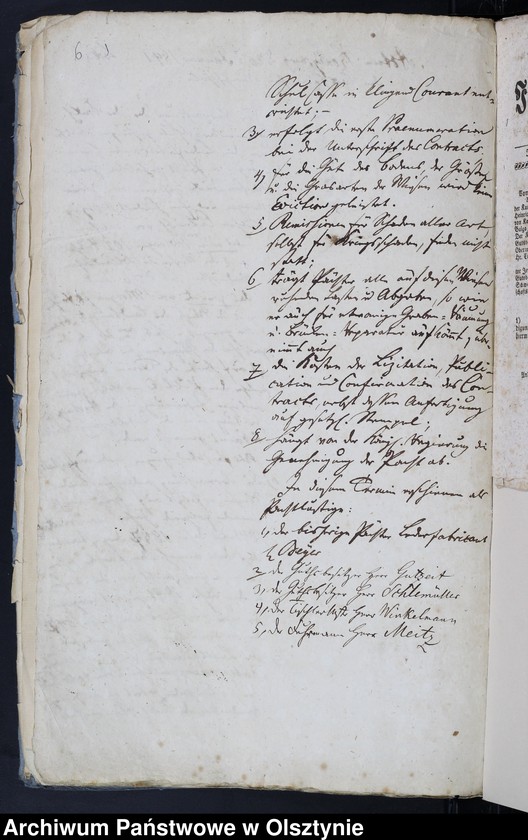 6
Schul Casse in klingend Courant ent-
richtet; –
3, erfolgt die erste Praenumeration
bei der Unterschrift des Contracts.
4, für die Güte des Bodens, der Größe
u. die Grasarten der Wiesen wird keine
Eviction geleistet.
5, Remissionen für Schaden aller Art
selbst für Kriegsschaden, finden nicht
statt;
6, trägt Pächter alle auf diesen Wiesen
ruhenden Lasten u Abgaben, so wie
er auch für etwanige Graben-Räumung
u. Brücken-Reparatur aufkömt, über
nimmt auch
7, die Kosten der Lizitation, Publi-
cation und Confirmation des Con-
tracts, nebst dessen Anfertigung
auf gesetzl. Stempel;
8, hängt von der Königl. Regierung die
Genehmigung der Pacht ab.
In diesem Termin erschienen als
Pachtlustige:
1, der bisherige Pächter Lederfabricant
H. Beyer
2, der Gutsbesitzer Herr Gutzeit
3, der Gutsbesitzer Herr Schlemüller
4, der Herr Winkelmann
5, der Fuhrmann Herr Meitz
Archiwum Państwowe w Olsztynie